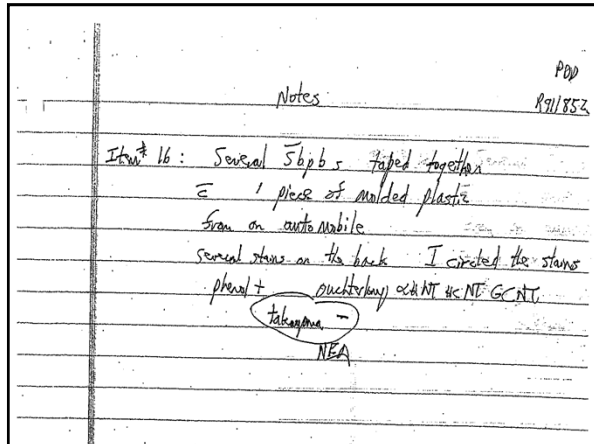 PDD
Notes
R91/852
Item# 16: Several Sbpbs taped together
c̄ 1 piece of molded plastic
from an automobile
several stains on the back I circled the stains
phenol + ouchterlony αH NT HC NT GC NT
takayama -
NEA